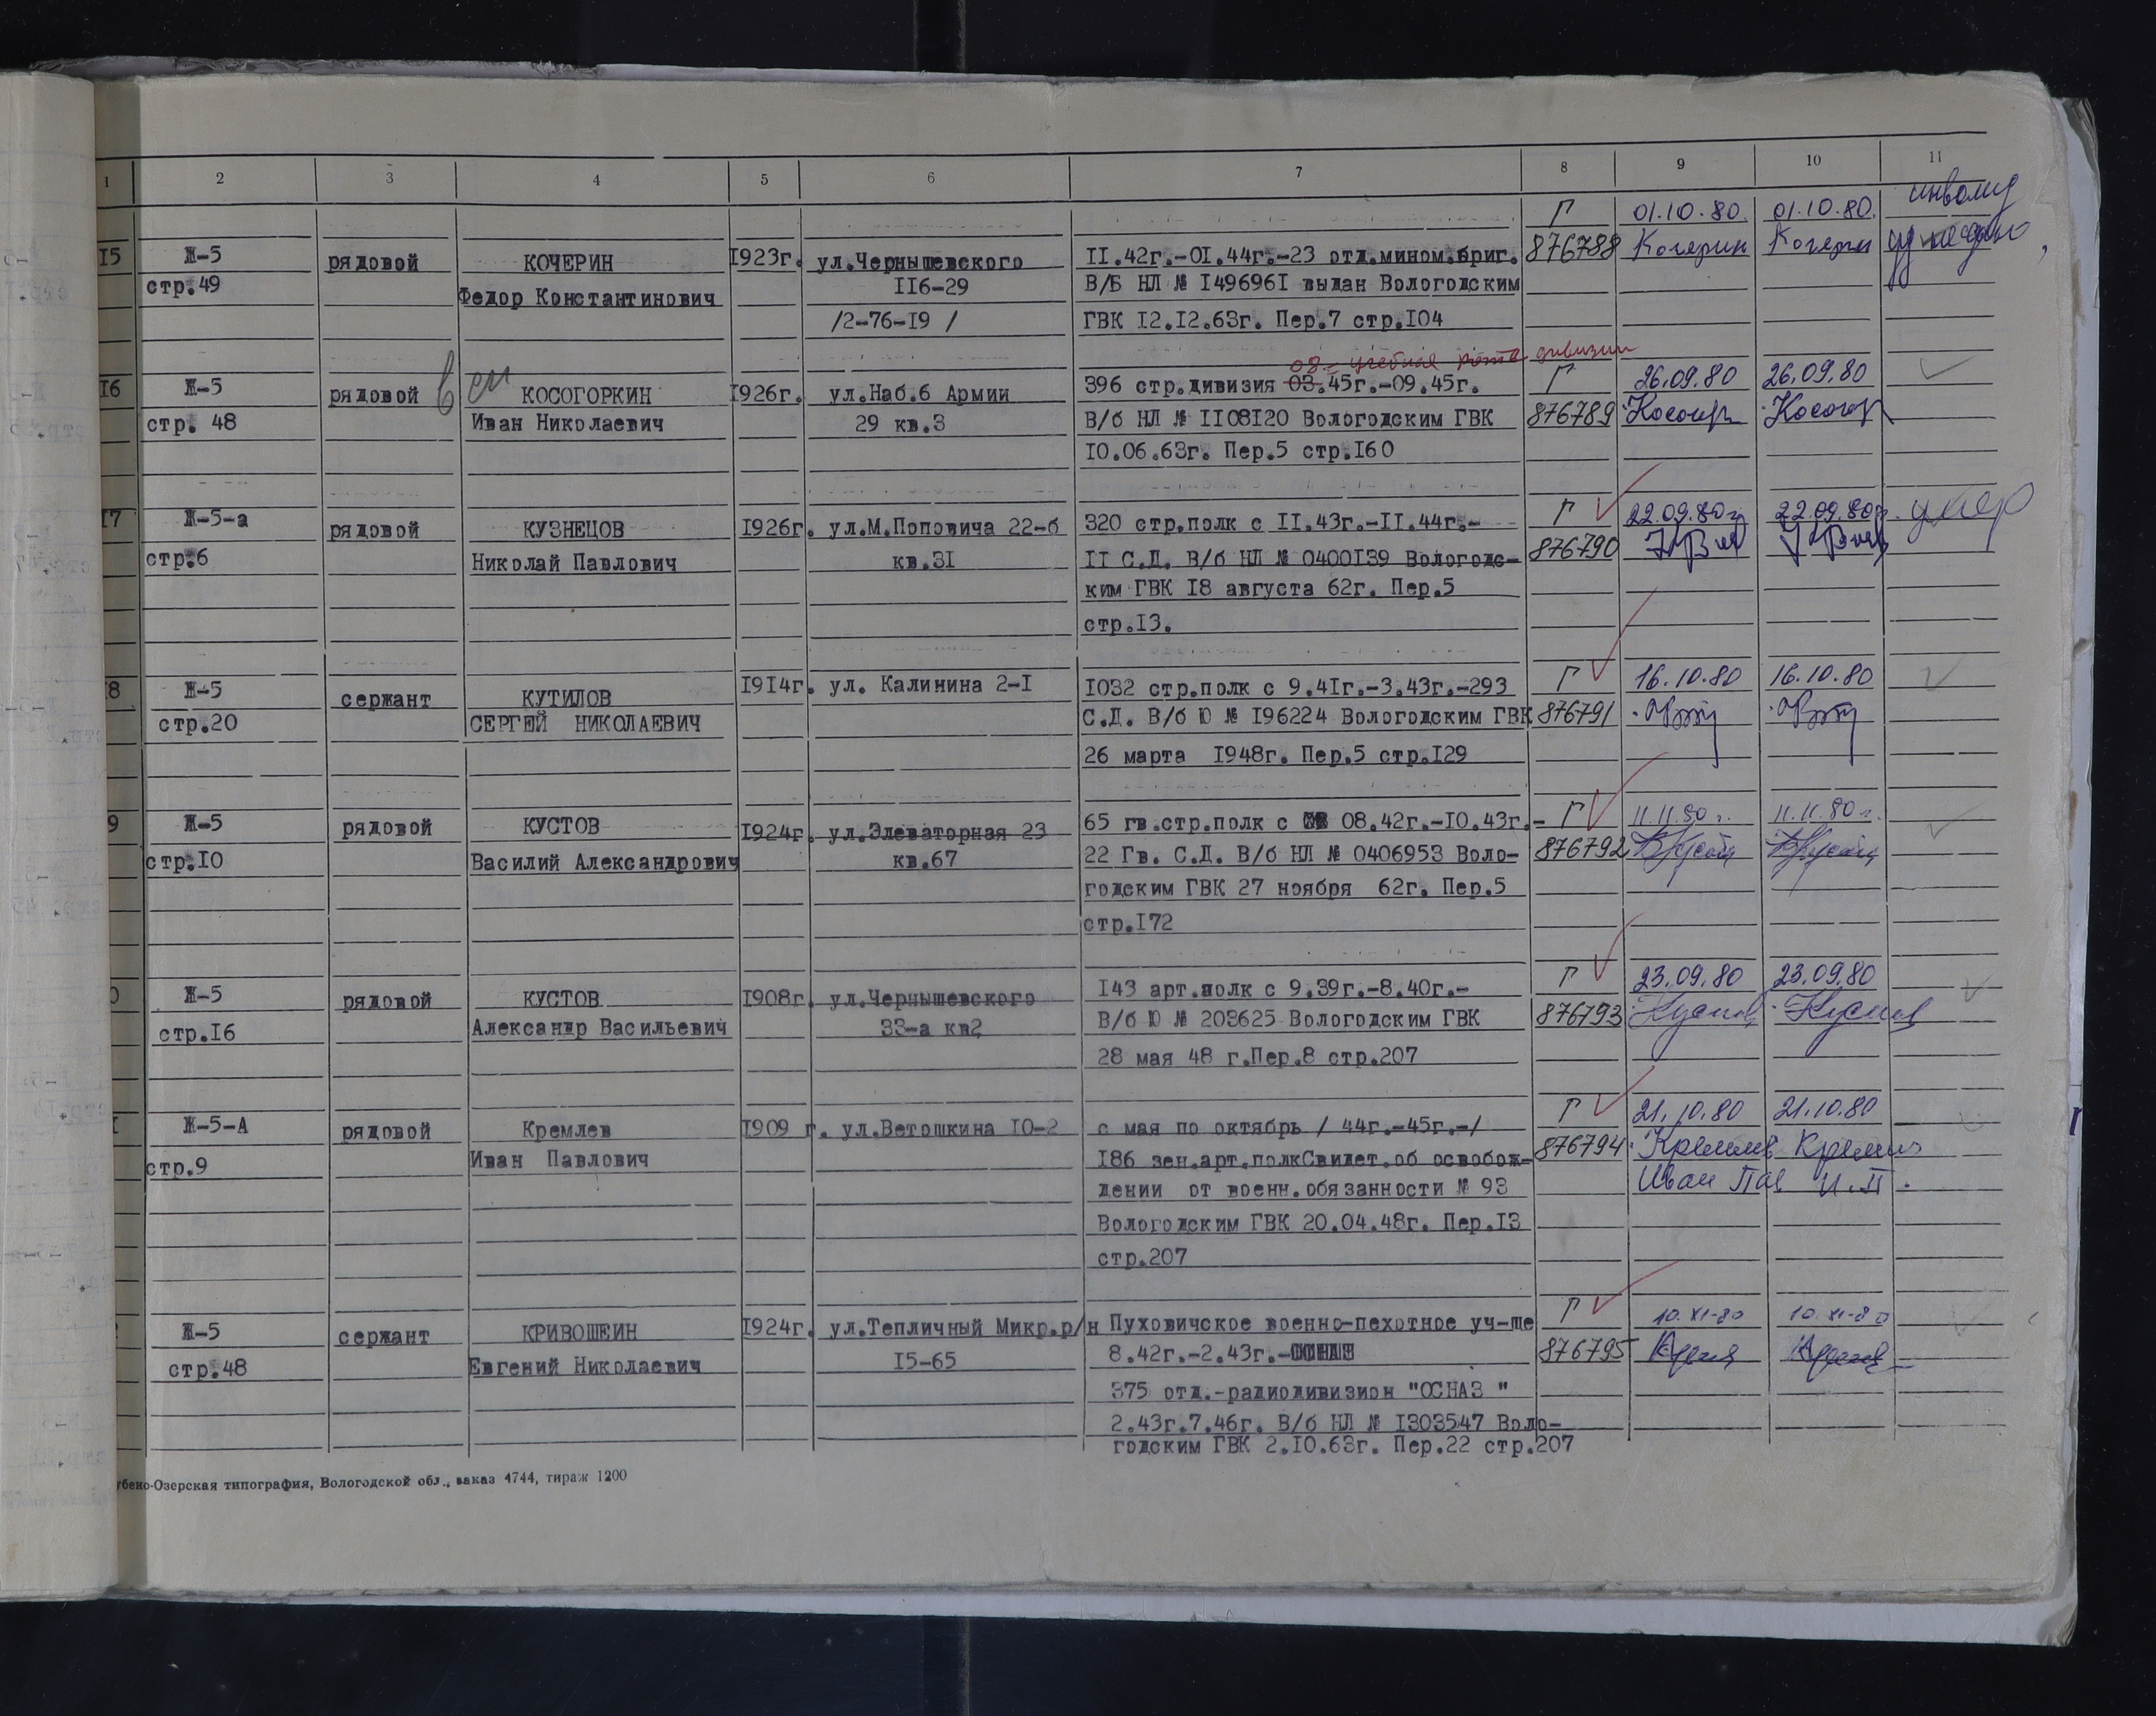 1 2 3 4 5 6 7 8 9 10 11
Г 01.10.80. 01.10.80. инвалид
15 Ж-5 рядовой КОЧЕРИН 1923г. ул.Чернышевского II.42г.-0I.44г.-23 отд.мином.бриг. 876788 Кочерин Кочерин
стр.49 Федор Константинович II6-29 В/Б НЛ № I49696I выдан Вологодским
/2-76-I9 / ГВК I2.I2.63г. Пер.7 стр.I04
08.- учебная рота дивизии
16 Ж-5 рядовой КОСОГОРКИН 1926г. ул.Наб.6 Армии 396 стр.дивизия 03.45г.-09.45г. Г 26.09.80 26.09.80
стр. 48 Иван Николаевич 29 кв.3 В/б НЛ № II08I20 Вологодским ГВК 876789 Косогор Косогор
I0.06.63г. Пер.5 стр.I60
17 Ж-5-а рядовой КУЗНЕЦОВ 1926г. ул.М.Поповича 22-б 320 стр.полк с II.43г.-II.44г.- Г 22.09.80г 22.09.80г. умер
стр.6 Николай Павлович кв.3I II С.Д. В/б НЛ № 0400I39 Вологодс- 876790
ким ГВК I8 августа 62г. Пер.5
стр.I3.
8 Ж-5 сержант КУТИЛОВ I9I4г. ул. Калинина 2-I I032 стр.полк с 9.4Iг.-3.43г.-293 Г 16.10.80 16.10.80
стр.20 СЕРГЕЙ НИКОЛАЕВИЧ С.Д. В/б Ю № I96224 Вологодским ГВК 876791
26 марта I948г. Пер.5 стр.I29
9 Ж-5 рядовой КУСТОВ I924г. ул.Элеваторная 23 65 гв.стр.полк с 08.42г.-I0.43г.- Г 11.11.80 г. 11.11.80 г.
стр.I0 Василий Александрович кв.67 22 Гв. С.Д. В/б НЛ № 0406953 Воло- 876792
годским ГВК 27 ноября 62г. Пер.5
стр.I72
0 Ж-5 рядовой КУСТОВ I908г. ул.Чернышевского I43 арт.полк с 9.39г.-8.40г.- Г 23.09.80 23.09.80
стр.I6 Александр Васильевич 33-а кв2 В/б Ю № 203625 Вологодским ГВК 876793 Кустов Кустов
28 мая 48 г.Пер.8 стр.207
I Ж-5-А рядовой Кремлев I909 г. ул.Ветошкина I0-2 с мая по октябрь / 44г.-45г.-/ Г 21.10.80 21.10.80
стр.9 Иван Павлович I86 зен.арт.полкСвидет.об освобож- 876794 Кремлев Кремлев
дении от военн.обязанности № 93 Иван Пав И.П.
Вологодским ГВК 20.04.48г. Пер.I3
стр.207
Ж-5 сержант КРИВОШЕИН I924г. ул.Тепличный Микр.р/н Пуховичское военно-пехотное уч-ще Г 10.XI-80 10.XI-80
стр.48 Евгений Николаевич I5-65 8.42г.-2.43г.- 876795
375 отд.-радиодивизион "ОСНАЗ "
2.43г.7.46г. В/б НЛ № I303547 Воло-
годским ГВК 2.I0.63г. Пер.22 стр.207
убено-Озерская типография, Вологодской обл., заказ 4744, тираж 1200